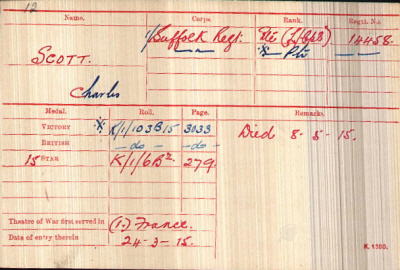 12
Name. Corps. Rank. Regtl. No.
1/Suffolk Regt. Pte (L/Cpl) 14458.
SCOTT. — " — * — Pte — " —
Charles
Medal. Roll. Page. Remarks.
VICTORY * K/1/103B15 3033 Died 8-5-15.
BRITISH — do — — do —
15 STAR K/1/6B2. 279.
Theatre of War first served in (1.) France.
Date of entry therein 24-3-15.
K. 1380.